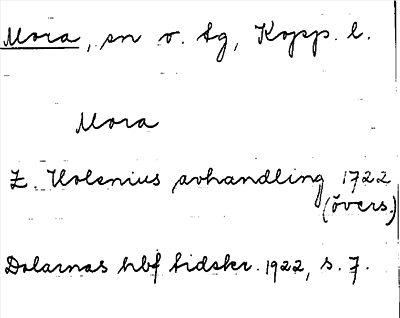 Mora, sn o. tg, Kopp. l.
Mora
Z. Holenius avhandling 1722
(övers.)
Dalarnas hbf tidskr. 1922, s. 7.